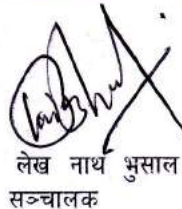 लेख नाथ भुसाल
सञ्चालक